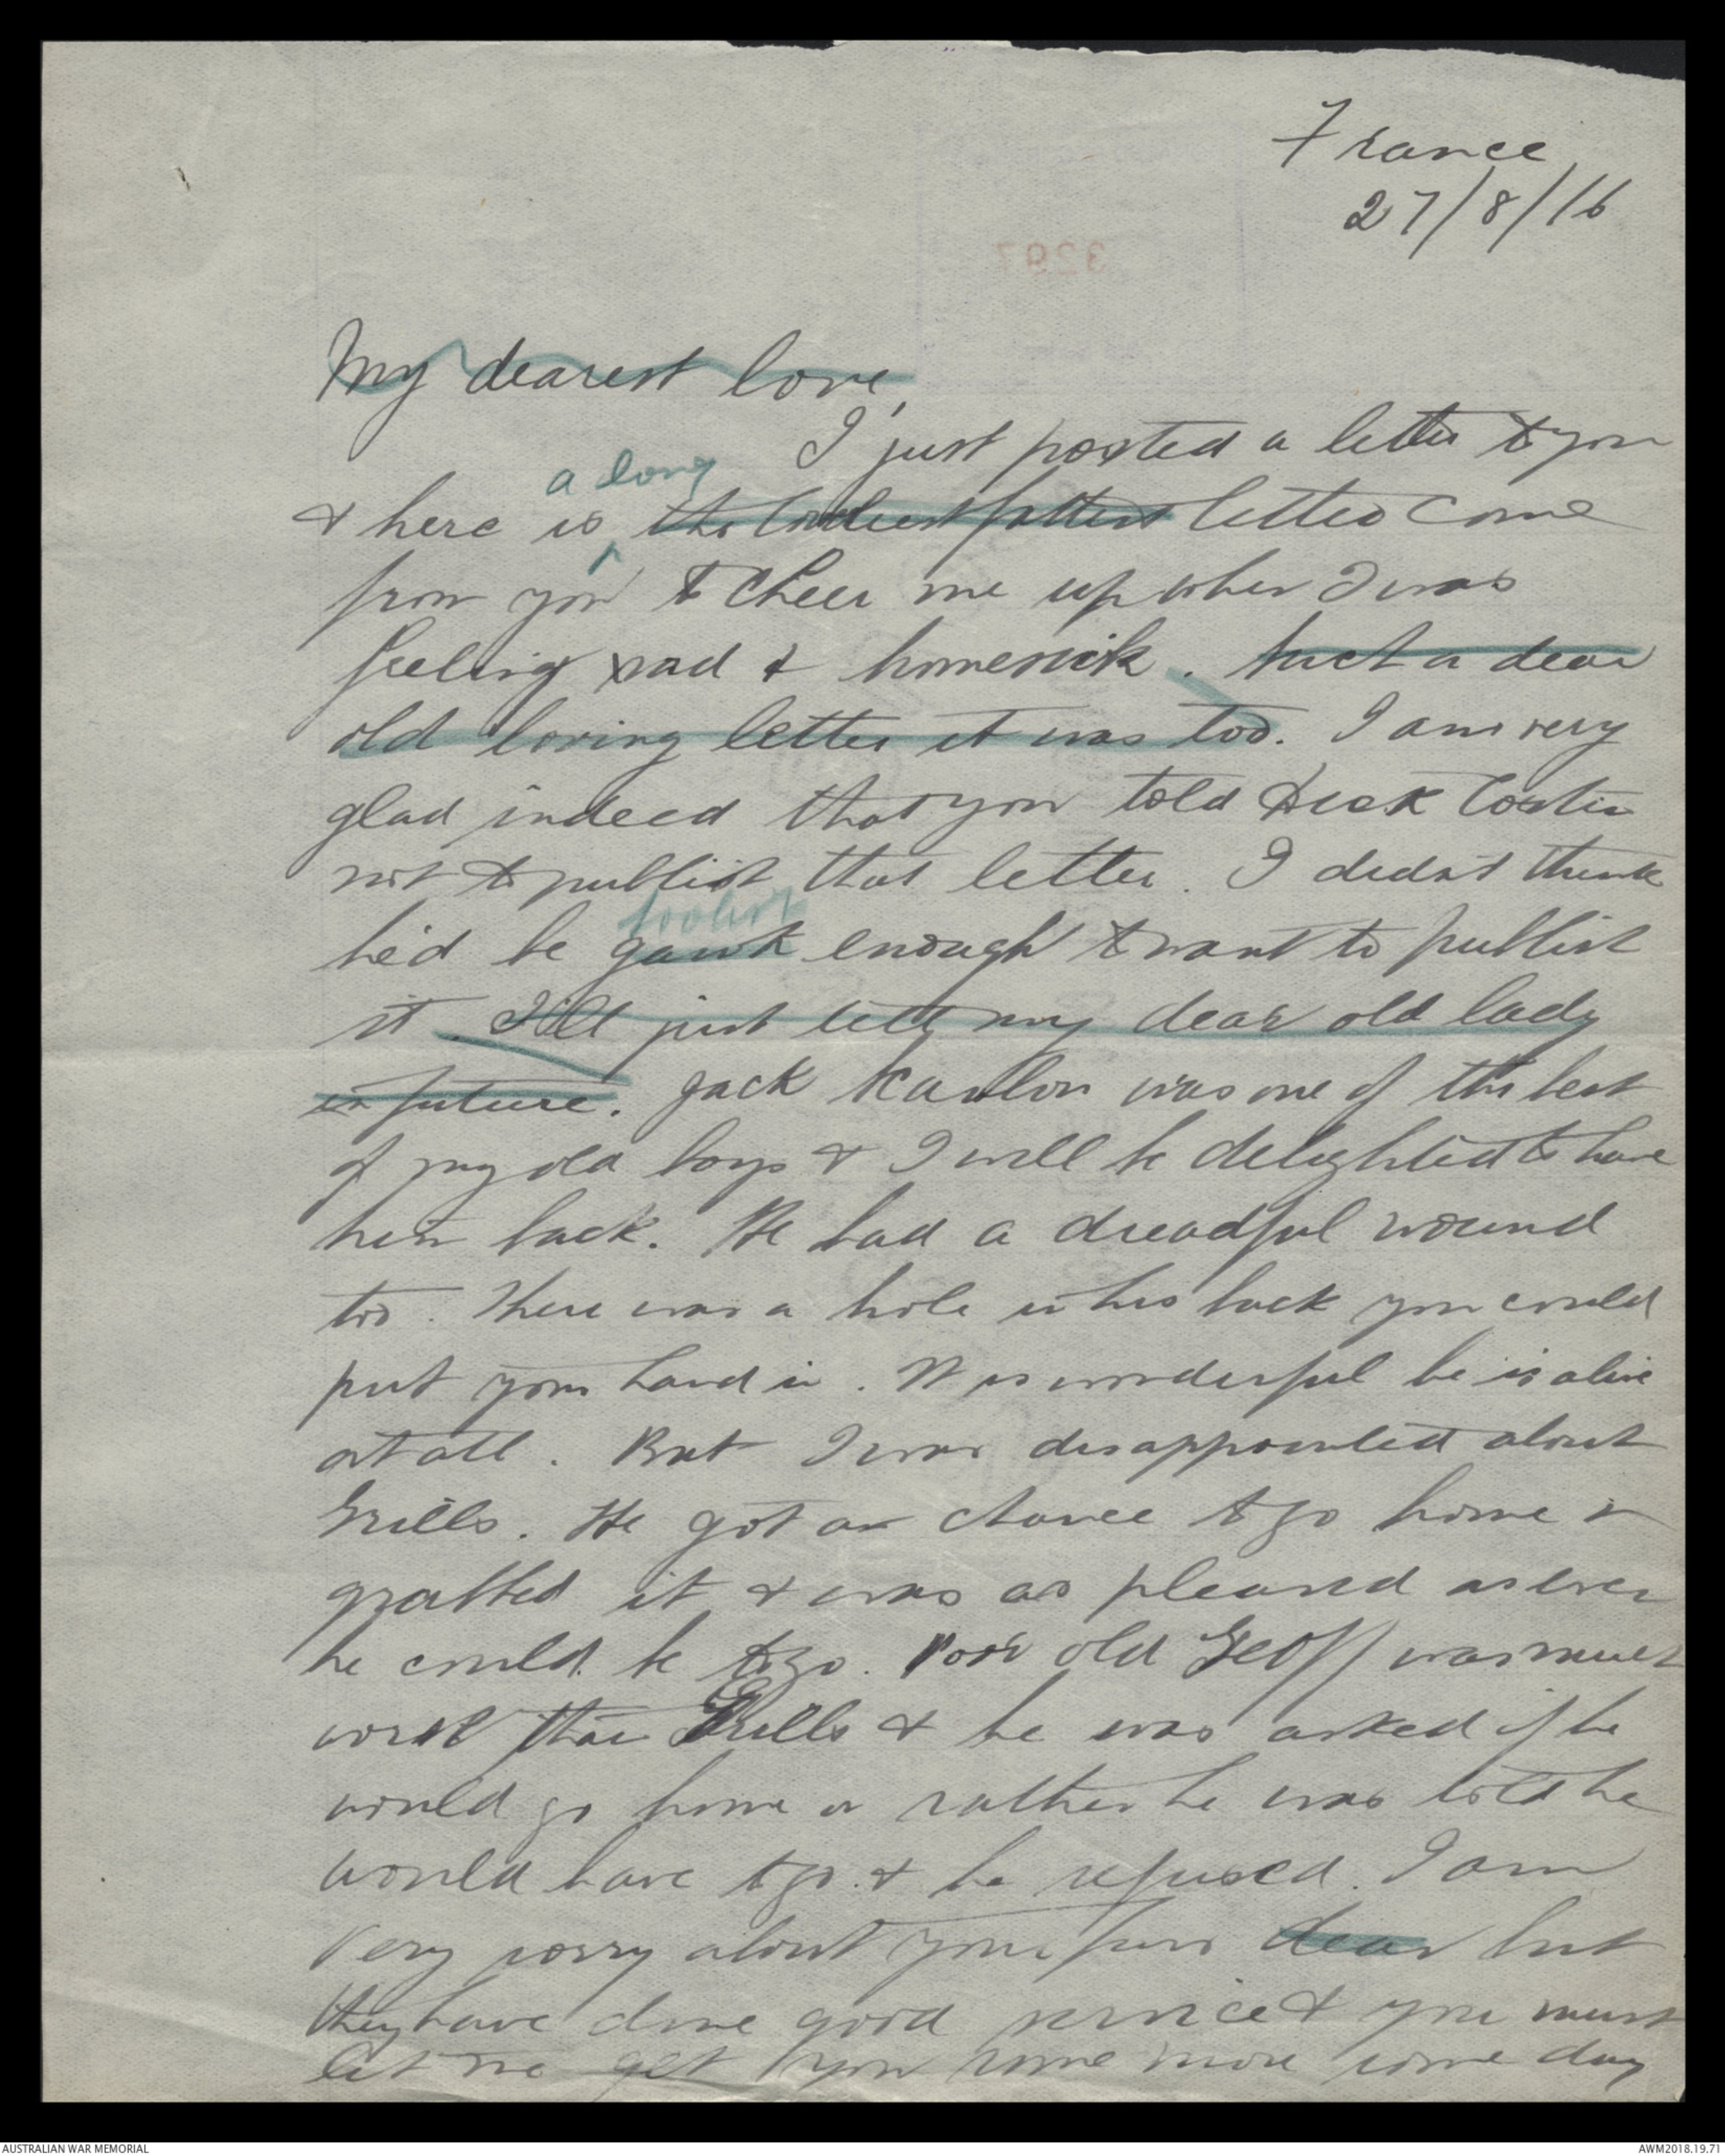 France
27/8/16
3297
My dearest love,
I just posted a letter to you
a long
& here is the letter come
from you to cheer me up when I was
feeling sad & homesick. Such a dear
old loving letter it was too. I am very
glad indeed that you told Dick
not to publish that letter. I didn't think
foolish
he'd be gawk enough to want to publish
it. I'll just my dear old lady
in future. Jack Hanlon was one of the best
of my old boys & I will be delighted to have
him back. He had a dreadful wound
too. There was a hole in his back you could
put your hand in. It is wonderful he is alive
at all. But I was disappointed about
Grills. He got a chance to go home &
grabbed it & was as pleased as ever
he could be to go. Poor old Geoff was much
worse than Grills & he was asked if he
would go home or rather he was told he
would have to go & he refused. I am
very sorry about your furs dear but
they have done good service & you must
let me get you some more some day
AUSTRALIAN WAR MEMORIAL
AWM2018.19.71